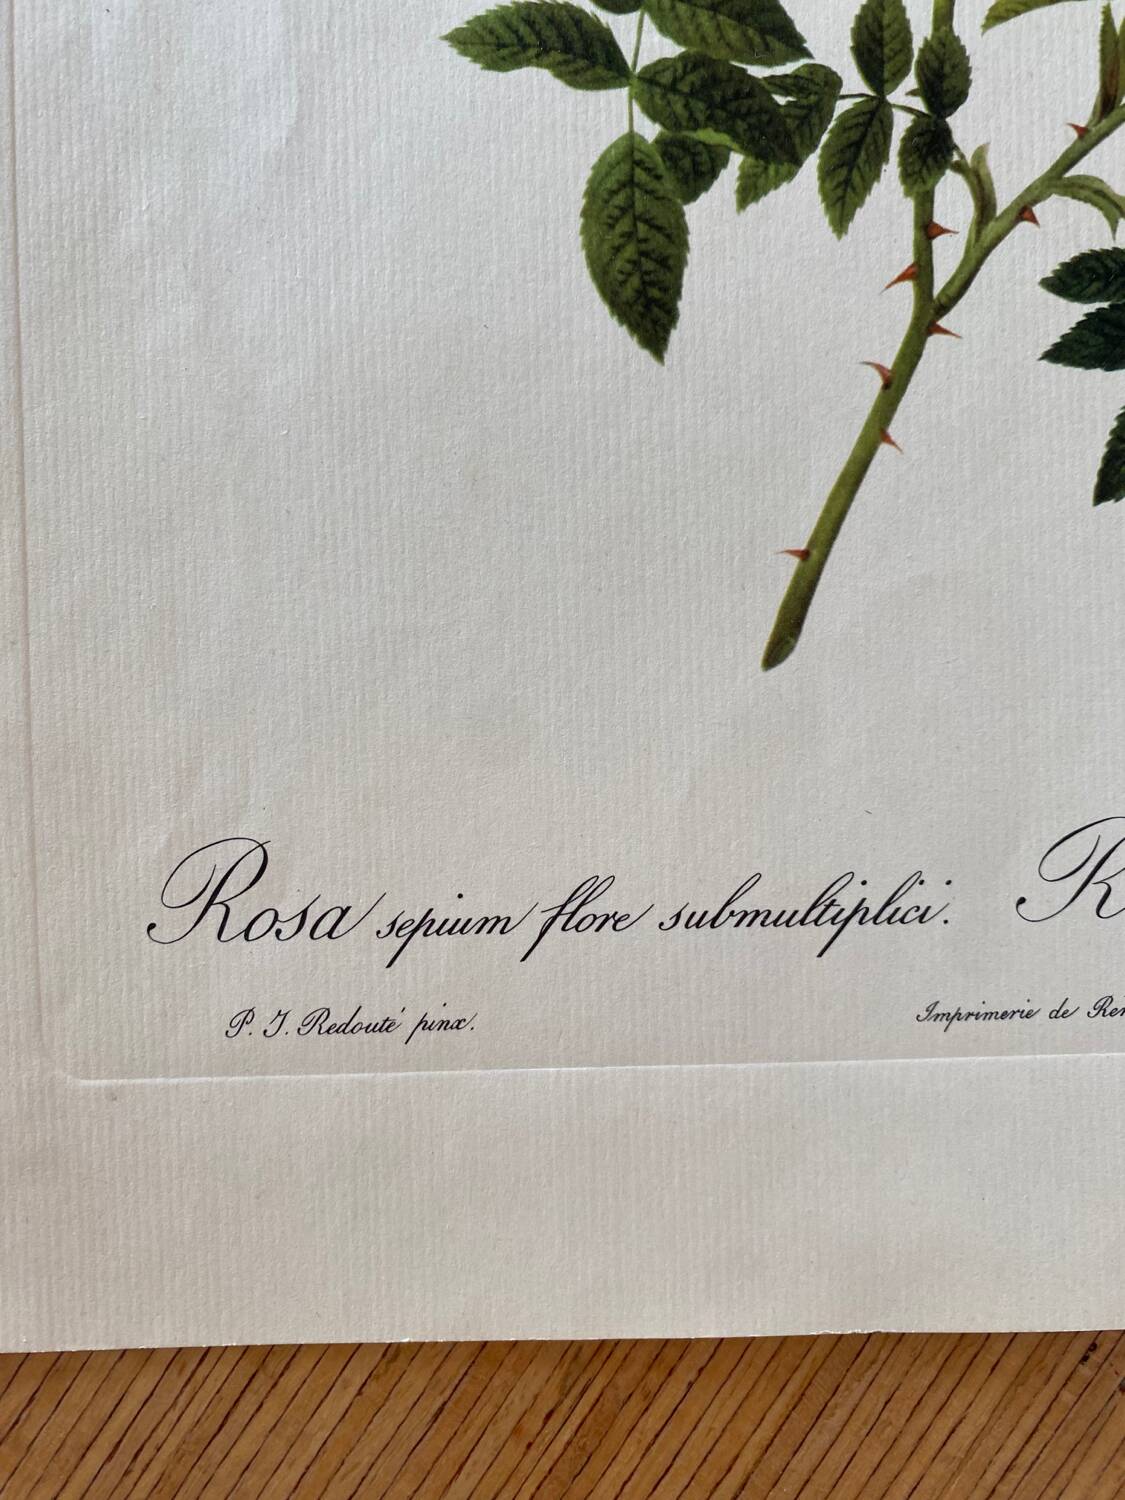 Rosa sepium flore submultiplici.
P. J. Redouté pinx.
Imprimerie de